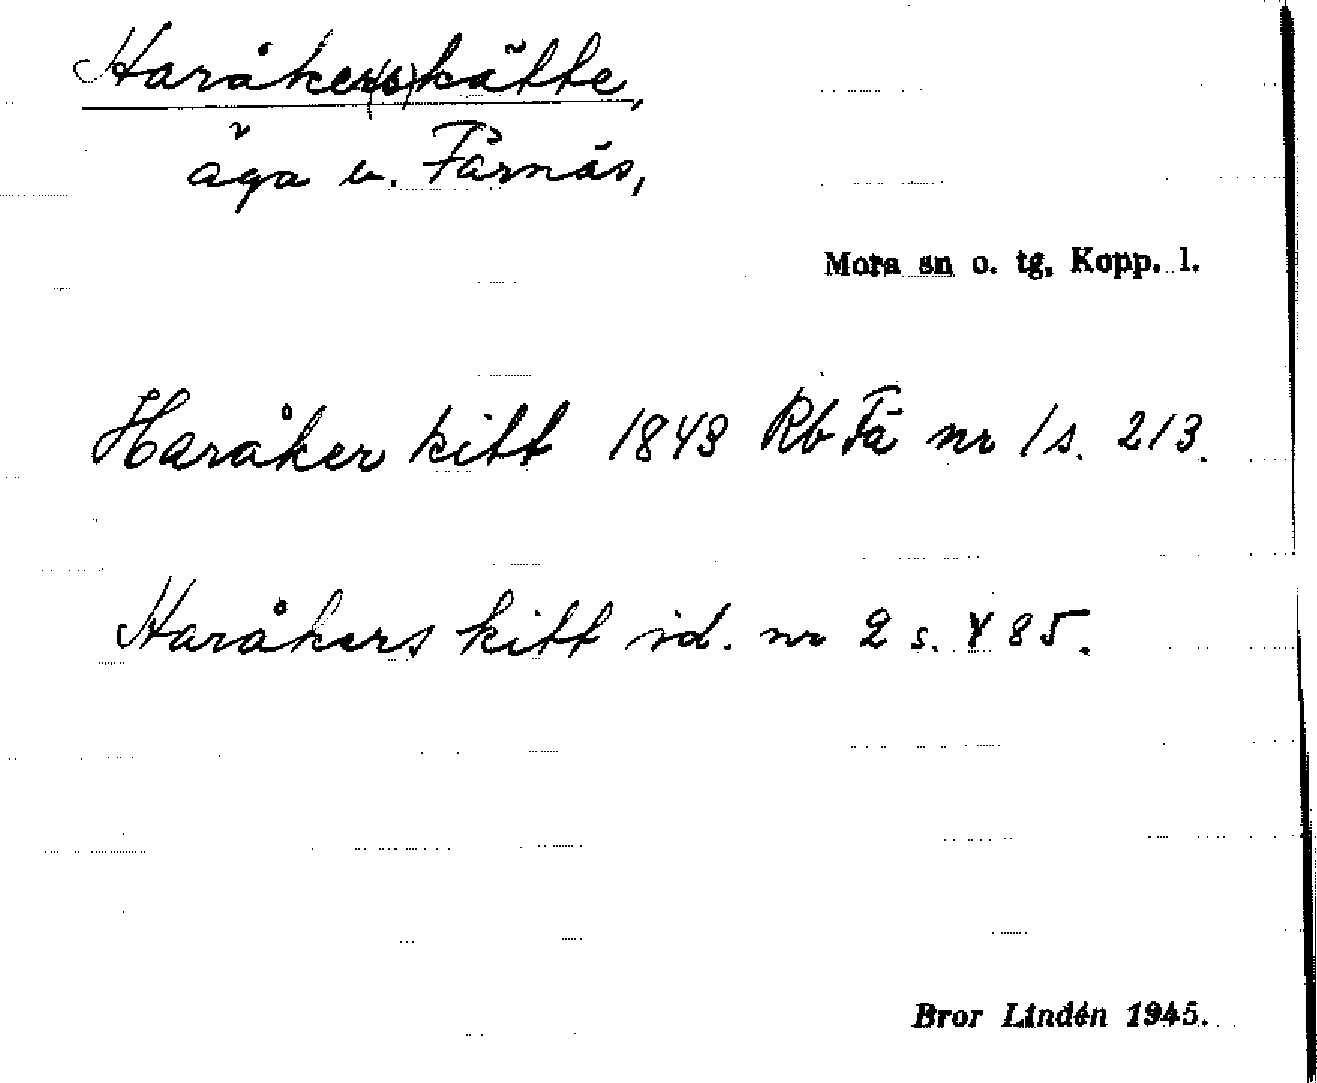 Haråker(s)kätte,
äga u. Färnäs,
Mora sn o. tg, Kopp. l.
Haråker kitt 1843 Rb Fä nr 1 s. 213.
Haråkers kitt id. nr 2 s. 485.
Bror Lindén 1945.